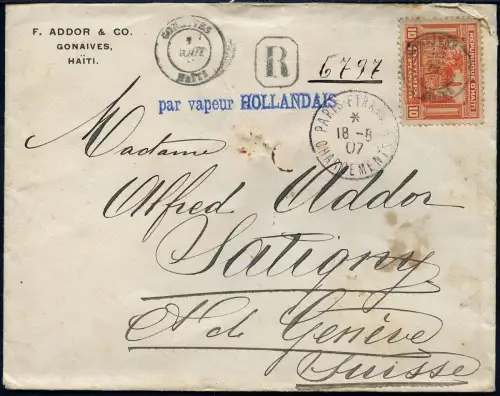 F. ADDOR & CO.
GONAIVES,
HAÏTI.
GONAIVES
HAITI
R
6797
REPUBLIQUE D'HAITI
10
10
par vapeur HOLLANDAIS
PARIS ETRANGER
*
18-8
07
CHARGEMENTS
Madame
Alfred Addor
Satigny
Ct de Genève
Suisse